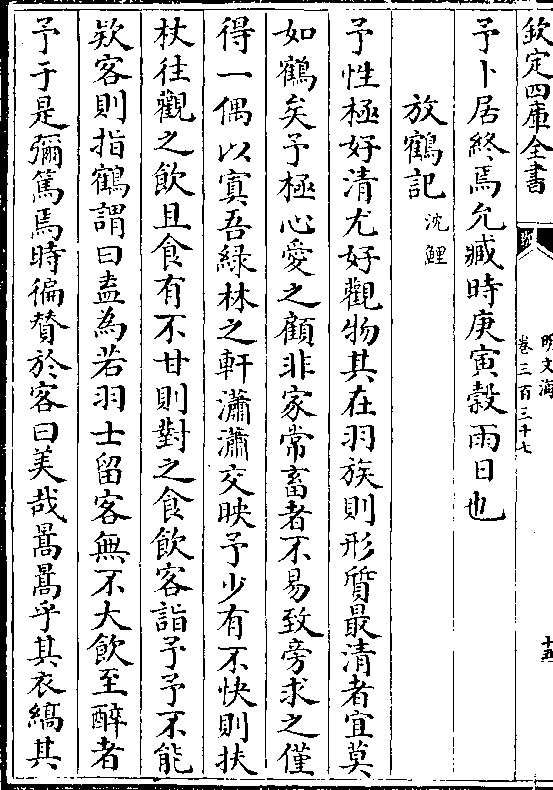 欽定四庫全書
明文海
卷三百三十七
十五
予卜居終焉允臧時庚寅穀雨日也
放鶴記沈鯉
予性極好清尤好觀物其在羽族則形質最清者宜莫
如鶴矣予極心愛之顧非家常畜者不易致旁求之僅
得一偶以寘吾綠林之軒瀟瀟交映予少有不快則扶
杖往觀之飲且食有不甘則對之食飲客詣予予不能
欵客則指鶴謂曰盍為若羽士留客無不大飲至醉者
予于是彌篤焉時徧賛於客曰美哉暠暠乎其衣縞其